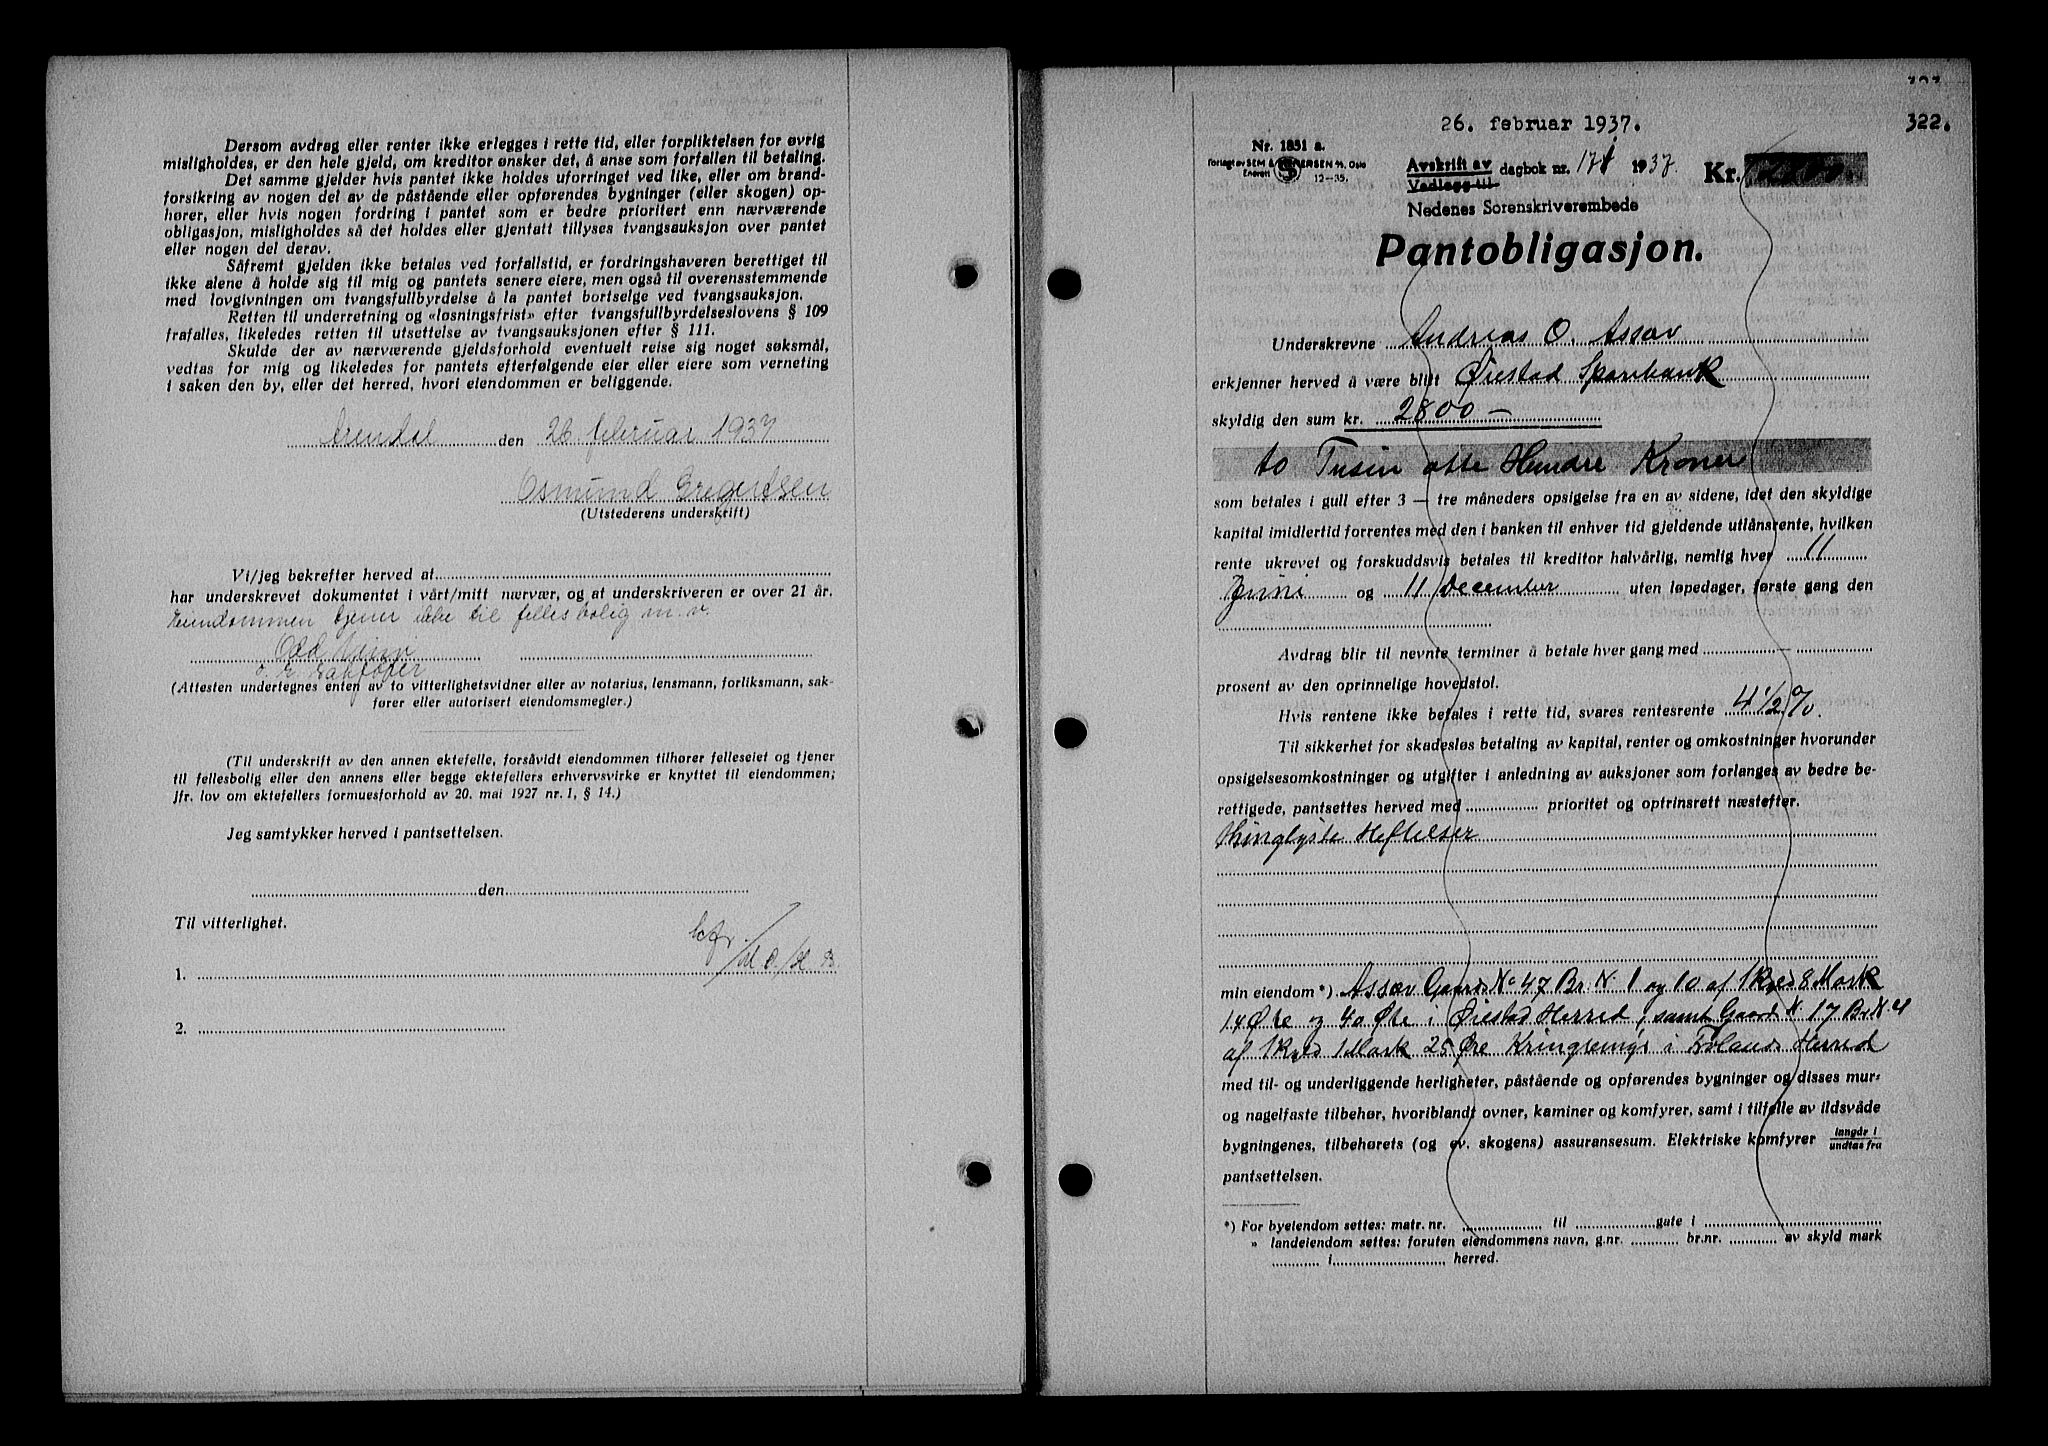 Dersom avdrag eller renter ikke erlegges i rette tid, eller forpliktelsen for øvrig
misligholdes, er den hele gjeld, om kreditor ønsker det, å anse som forfallen til betaling.
Det samme gjelder hvis pantet ikke holdes uforringet ved like, eller om brand-
forsikring av nogen del av de påstående eller opførendes bygninger (eller skogen) op-
hører, eller hvis nogen fordring i pantet som er bedre prioritert enn nærværende
obligasjon, misligholdes så det holdes eller gjentatt tillyses tvangsauksjon over pantet
eller nogen del derav.
Såfremt gjelden ikke betales ved forfallstid, er fordringshaveren berettiget til
ikke alene å holde sig til mig og pantets senere eiere, men også til overensstemmende
med lovgivningen om tvangsfullbyrdelse å la pantet bortselge ved tvangsauksjon.
Retten til underretning og «løsningsfrist» efter tvangsfullbyrdelseslovens § 109
frafalles, likeledes retten til utsettelse av tvangsauksjonen efter § 111.
Skulde der av nærværende gjeldsforhold eventuelt reise sig noget søksmål,
vedtas for mig og likeledes for pantets efterfølgende eier eller eiere som verneting
i saken den by, eller det herred, hvori eiendommen er beliggende.
Arendal den 26. februar 1937
Osmund Gregertsen
(Utstederens underskrift)
Vi/jeg bekrefter herved at
har underskrevet dokumentet i vårt/mitt nærvær, og at underskriveren er over 21 år.
Eiendommen tjener ikke til fellesbolig m.v.
Odd
(Attesten undertegnes enten av to vitterlighetsvidner eller av notarius, lensmann, forliksmann, sak-
fører eller autorisert eiendomsmegler.)
(Til underskrift av den annen ektefelle, forsåvidt eiendommen tilhører felleseiet og tjener
til fellesbolig eller den annens eller begge ektefellers erhvervsvirke er knyttet til eiendommen;
jfr. lov om ektefellers formuesforhold av 20. mai 1927 nr. 1, § 14.)
Jeg samtykker herved i pantsettelsen.
den
Til vitterlighet.
1.
2.
322.
26. februar 1937.
Nr. 1851 a.
Enerett 12-35.
Avskrift av
Vedlegg til dagbok nr. 1937 Kr. 2800
Nedenes Sorenskriverembede
Pantobligasjon.
Underskrevne Andreas O. Assæv
erkjenner herved å være blitt Øiestad Sparebank
skyldig den sum kr. 2800 —
to Tusin otte Hundre Kroner
som betales i gull efter 3 — tre måneders opsigelse fra en av sidene, idet den skyldige
kapital imidlertid forrentes med den i banken til enhver tid gjeldende utlånsrente, hvilken
rente ukrevet og forskuddsvis betales til kreditor halvårlig, nemlig hver 11
Juni og 11 December uten løpedager, første gang den
Avdrag blir til nevnte terminer å betale hver gang med —
prosent av den oprinnelige hovedstol.
Hvis rentene ikke betales i rette tid, svares rentesrente 4 1/2 %.
Til sikkerhet for skadesløs betaling av kapital, renter og omkostninger hvorunder
opsigelsesomkostninger og utgifter i anledning av auksjoner som forlanges av bedre be-
rettigede, pantsettes herved med prioritet og optrinsrett næstefter.
thinglyste Heftelser
min eiendom*) Assæv Gaards No 47 Br. N. 1 og 10 af Skyld 8 Mark
14 Øre og 40 Øre i Øiestad Herred, samt Gaard N. 17 Br N. 4
af Skyld 1 Mark 25 Øre Kringlemyr i Froland Herred
med til- og underliggende herligheter, påstående og opførendes bygninger og disses mur-
og nagelfaste tilbehør, hvoriblandt ovner, kaminer og komfyrer, samt i tilfelle av ildsvåde
bygningenes, tilbehørets (og ev. skogens) assuransesum. Elektriske komfyrer inngår i / undtas fra
pantsettelsen.
*) For byeiendom settes: matr. nr. til gate i
" landeiendom settes: foruten eiendommens navn, g.nr. br.nr. av skyld mark
i herred.